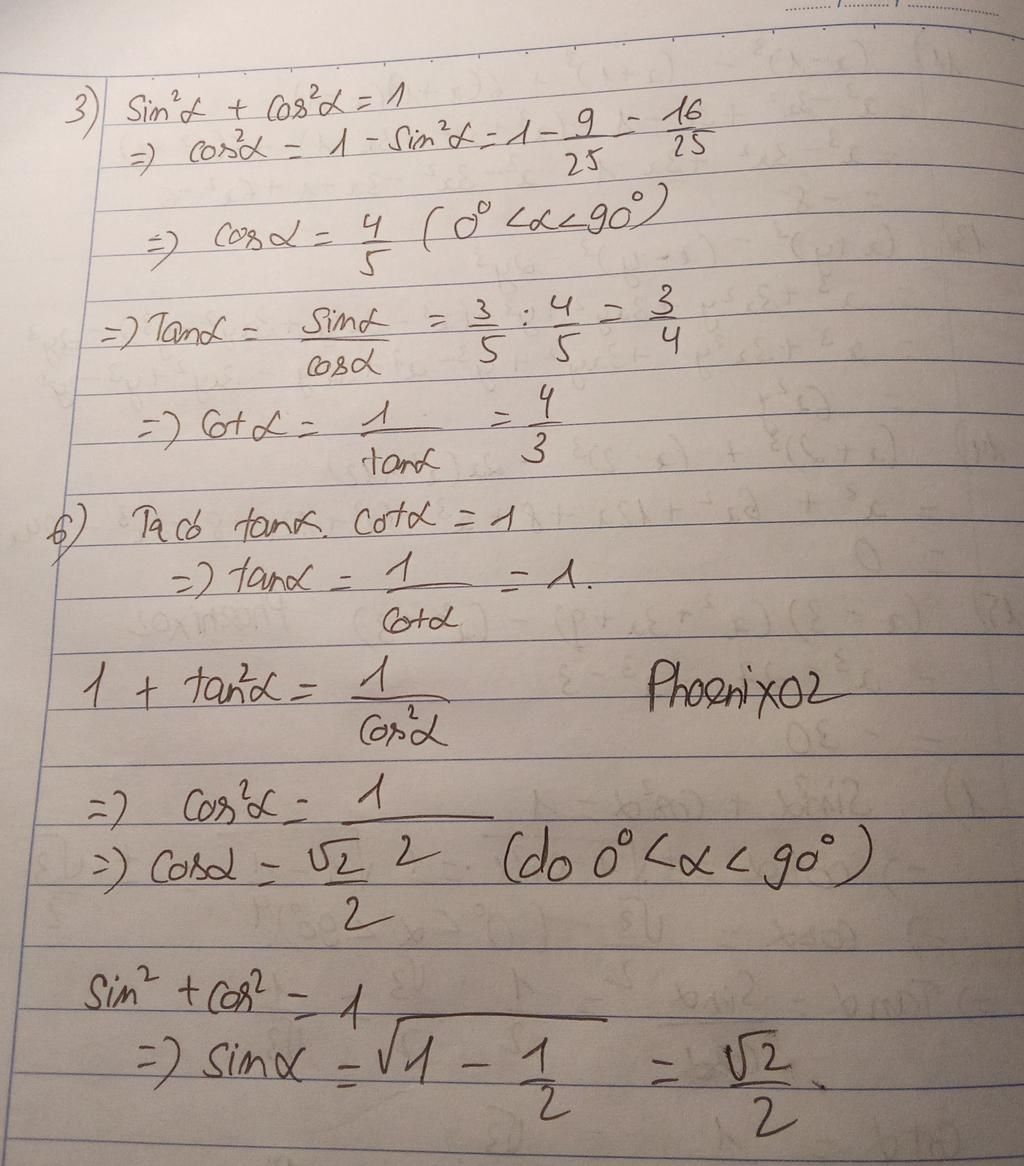 3) Sin²α + Cos²α = 1
=> cos²α = 1 - sin²α = 1 - 9/25 = 16/25
=> cosα = 4/5 (0° < α < 90°)
=> Tanα = Sinα/cosα = 3/5 : 4/5 = 3/4
=> Cotα = 1/tanα = 4/3
6) Ta có tanα. Cotα = 1
=> tanα = 1/Cotα = 1.
1 + tan²α = 1/Cos²α
Phoenix02
=> Cos²α = 1/2
=> Cosα = √2/2 (do 0° < α < 90°)
Sin² + Cos² = 1
=> sinα = √(1 - 1/2) = √2/2.